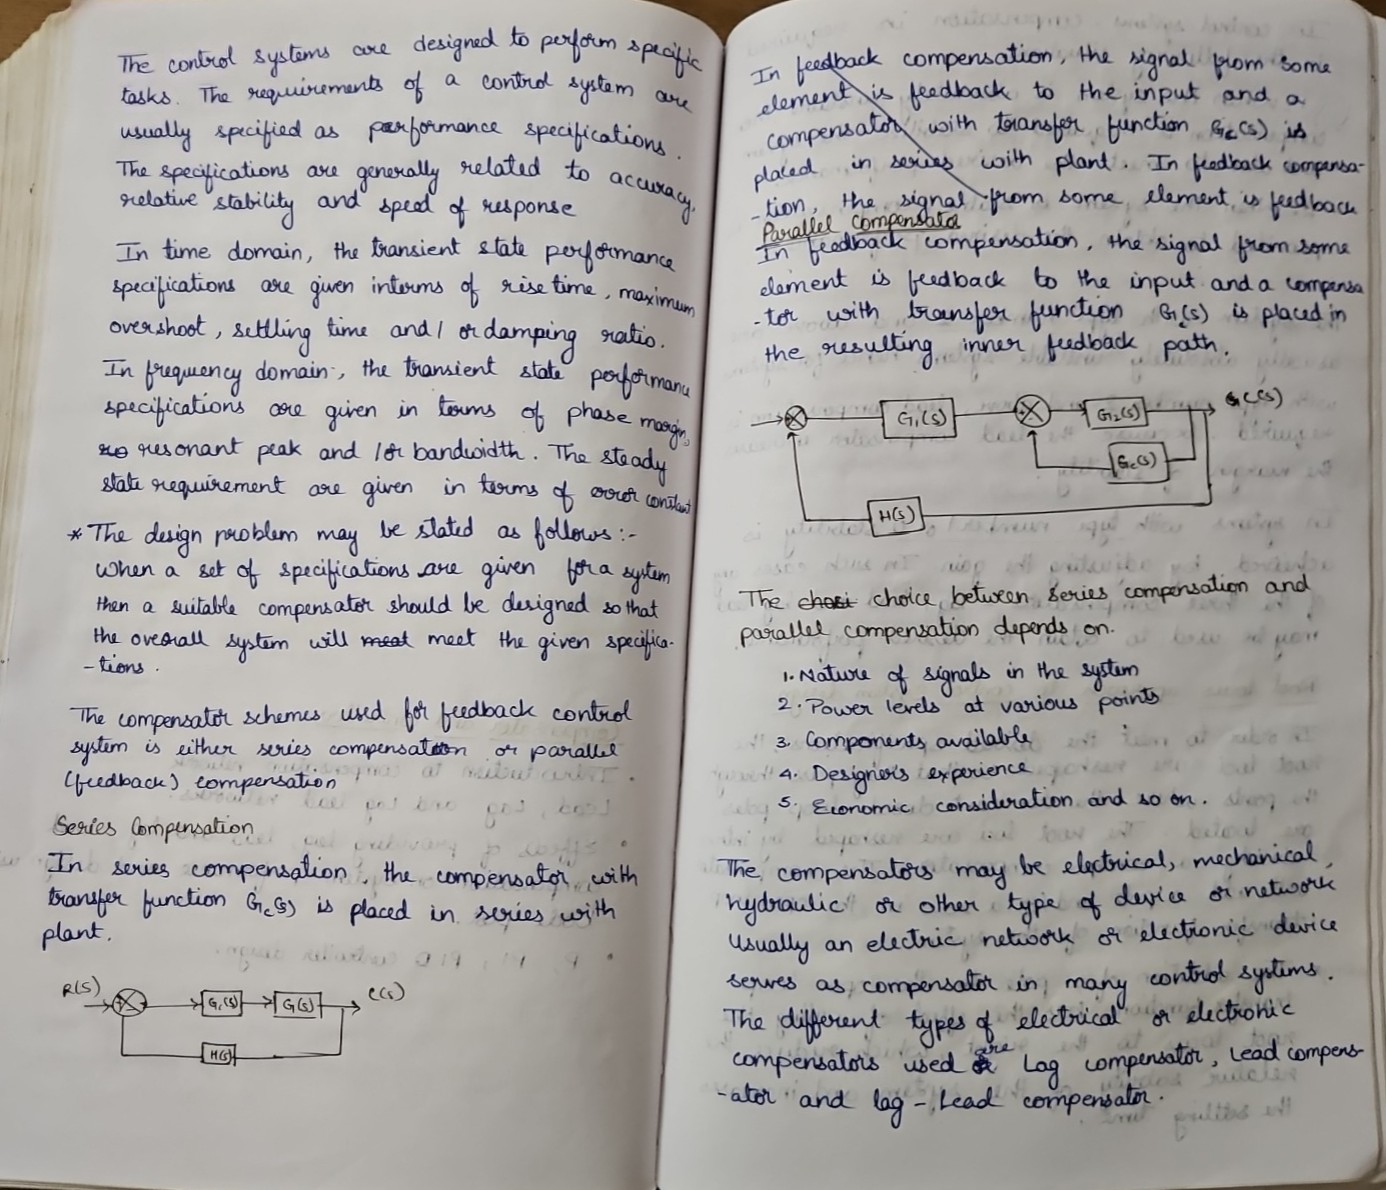 The control systems are designed to perform specific
tasks. The requirements of a control system are
usually specified as performance specifications.
The specifications are generally related to accuracy,
relative stability and speed of response
In time domain, the transient state performance
specifications are given interms of rise time, maximum
overshoot, settling time and / or damping ratio.
In frequency domain, the transient state performance
specifications are given in terms of phase margin,
resonant peak and / or bandwidth. The steady
state requirement are given in terms of error constant
* The design problem may be stated as follows:-
When a set of specifications are given for a system
then a suitable compensator should be designed so that
the overall system will meet the given specifica-
-tions.
The compensator schemes used for feedback control
system is either series compensation or parallel
(feedback) compensation
Series Compensation
In series compensation, the compensator with
transfer function Gc(s) is placed in series with
plant.
R(S) G1(s) G(s) C(s)
H(s)
In feedback compensation, the signal from some
element is feedback to the input and a
compensator with transfer function Gc(s) is
placed in series with plant. In feedback compensa-
-tion, the signal from some element is feedback
Parallel Compensator
In feedback compensation, the signal from some
element is feedback to the input and a compensa
-tor with transfer function Gc(s) is placed in
the resulting inner feedback path.
G1(s) G2(s) C(s)
Gc(s)
H(s)
The choice between series compensation and
parallel compensation depends on.
1. Nature of signals in the system
2. Power levels at various points
3. Components available
4. Designer's experience
5. Economic consideration and so on.
The compensators may be electrical, mechanical,
hydraulic or other type of device or network
Usually an electric network or electronic device
serves as compensator in many control systems.
The different types of electrical or electronic
compensators used are Lag compensator, Lead compens-
-ator and lag-Lead compensator.